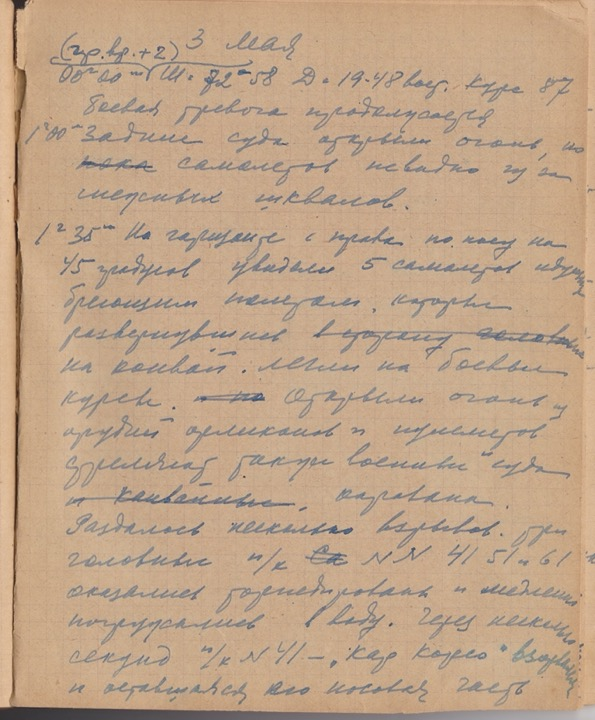 (гр. вр. + 2) 3 мая
00ч 00м Ш = 72° 58 Д = 19-48 вост. Курс 87
боевая тревога продолжается
1ч 00м Задние суда открыли огонь, но
пока самолетов невидно из за
снежных шквалов.
1ч 35м На гаризонте с права по носу на
45 градусов увидели 5 самолетов идущих
бреющим полетом, которые
развернувшись в сторону головных
на конвой. легли на боевые
курсы. Открыли огонь из
орудий орликонов и пулеметов
стреляют также военные суда
и конвойные, каравана.
Раздалось несколько взрывов. Три
головные п/х NN 41 51 и 61
оказались торпедированы и медленно
погружались в воду. Через несколько
секунд п/х N 41 – "Кап Корсо" взорвался
и оставшаяся его носовая часть